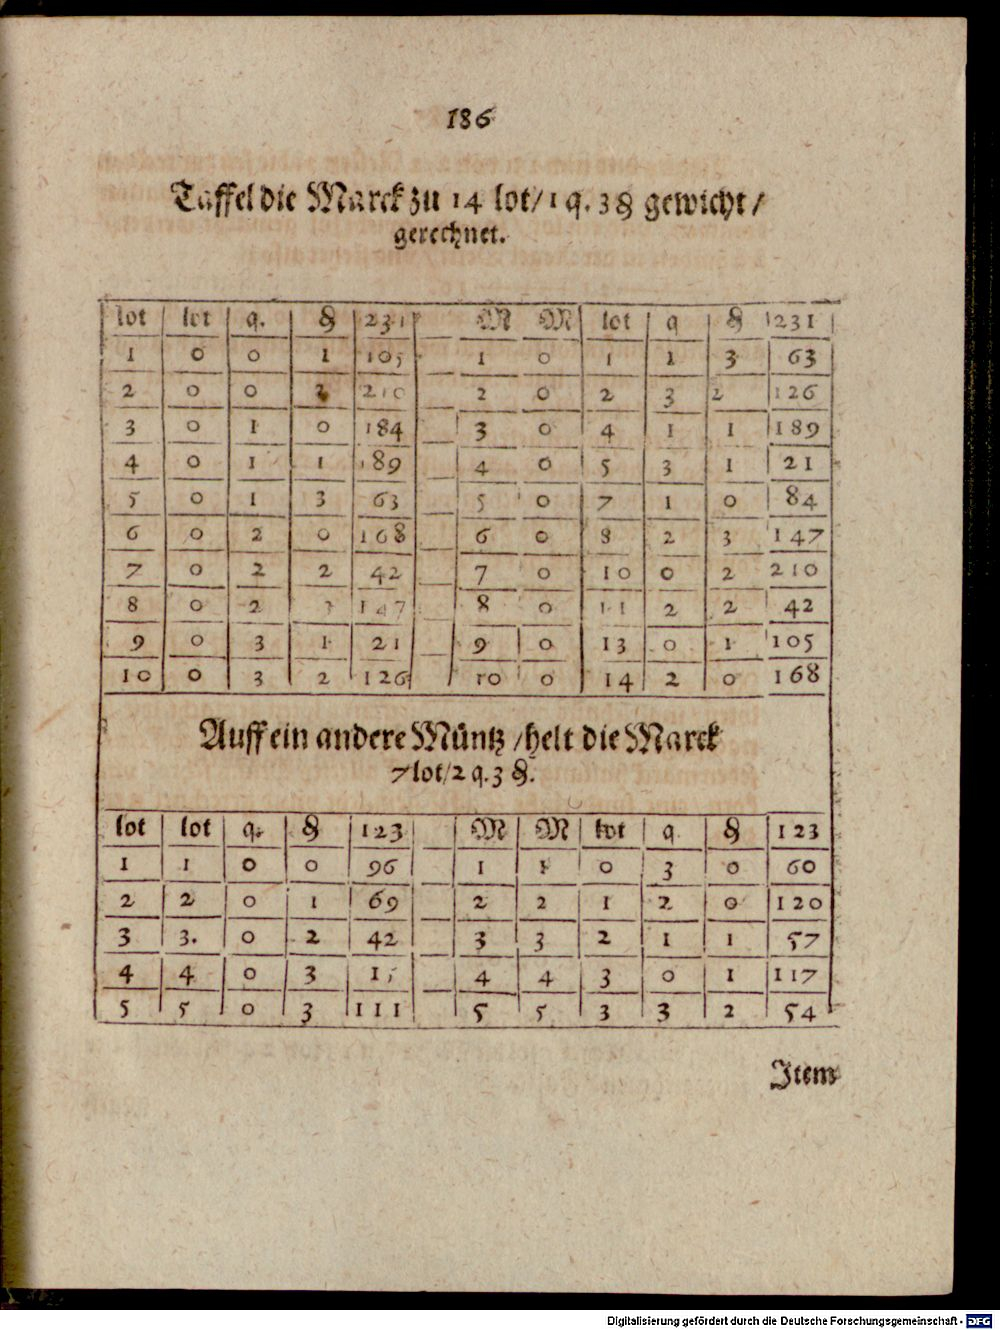 186
Taffel die Marck zu 14 lot/ 1 q. 3 ₰ gewicht/
gerechnet.
lot lot q. ₰ 231 M M lot q ₰ 231
1 0 0 1 105 1 0 1 1 3 63
2 0 0 2 210 2 0 2 3 2 126
3 0 1 0 184 3 0 4 1 1 189
4 0 1 1 189 4 0 5 3 1 21
5 0 1 3 63 5 0 7 1 0 84
6 0 2 0 168 6 0 8 2 3 147
7 0 2 2 42 7 0 10 0 2 210
8 0 2 3 147 8 0 11 2 2 42
9 0 3 1 21 9 0 13 0 1 105
10 0 3 2 126 10 0 14 2 0 168
Auff ein andere Müntz/ helt die Marck
7 lot/ 2 q. 3 ₰.
lot lot q. ₰ 123 M M lot q ₰ 123
1 1 0 0 96 1 1 0 3 0 60
2 2 0 1 69 2 2 1 2 0 120
3 3. 0 2 42 3 3 2 1 1 57
4 4 0 3 15 4 4 3 0 1 117
5 5 0 3 111 5 5 3 3 2 54
Item
Digitalisierung gefördert durch die Deutsche Forschungsgemeinschaft - DFG